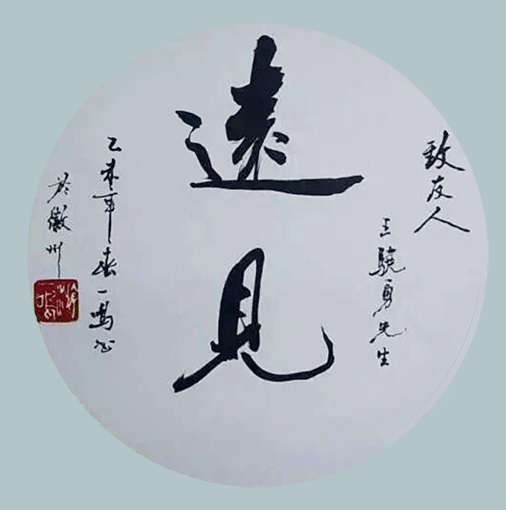 致友人
王骁勇先生
遠見
乙未年春一鳴书
於徽州